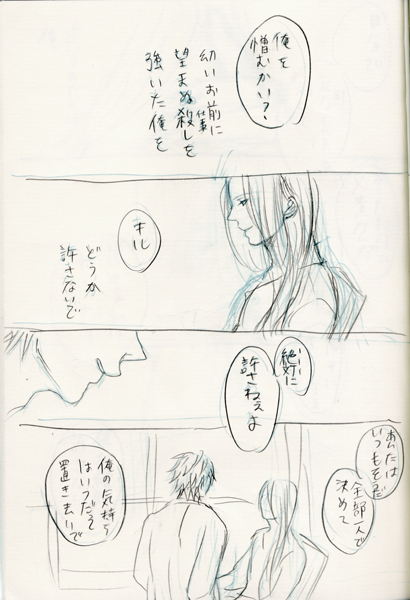 俺を
憎むかい？
幼いお前に
仕事
望まぬ殺しを
強いた俺を
キル
どうか
許さないで
絶対に
許さねぇよ
あんたは
いつもそうだ
全部一人で
決めて
俺の気持ち
はいつだって
置き去いで